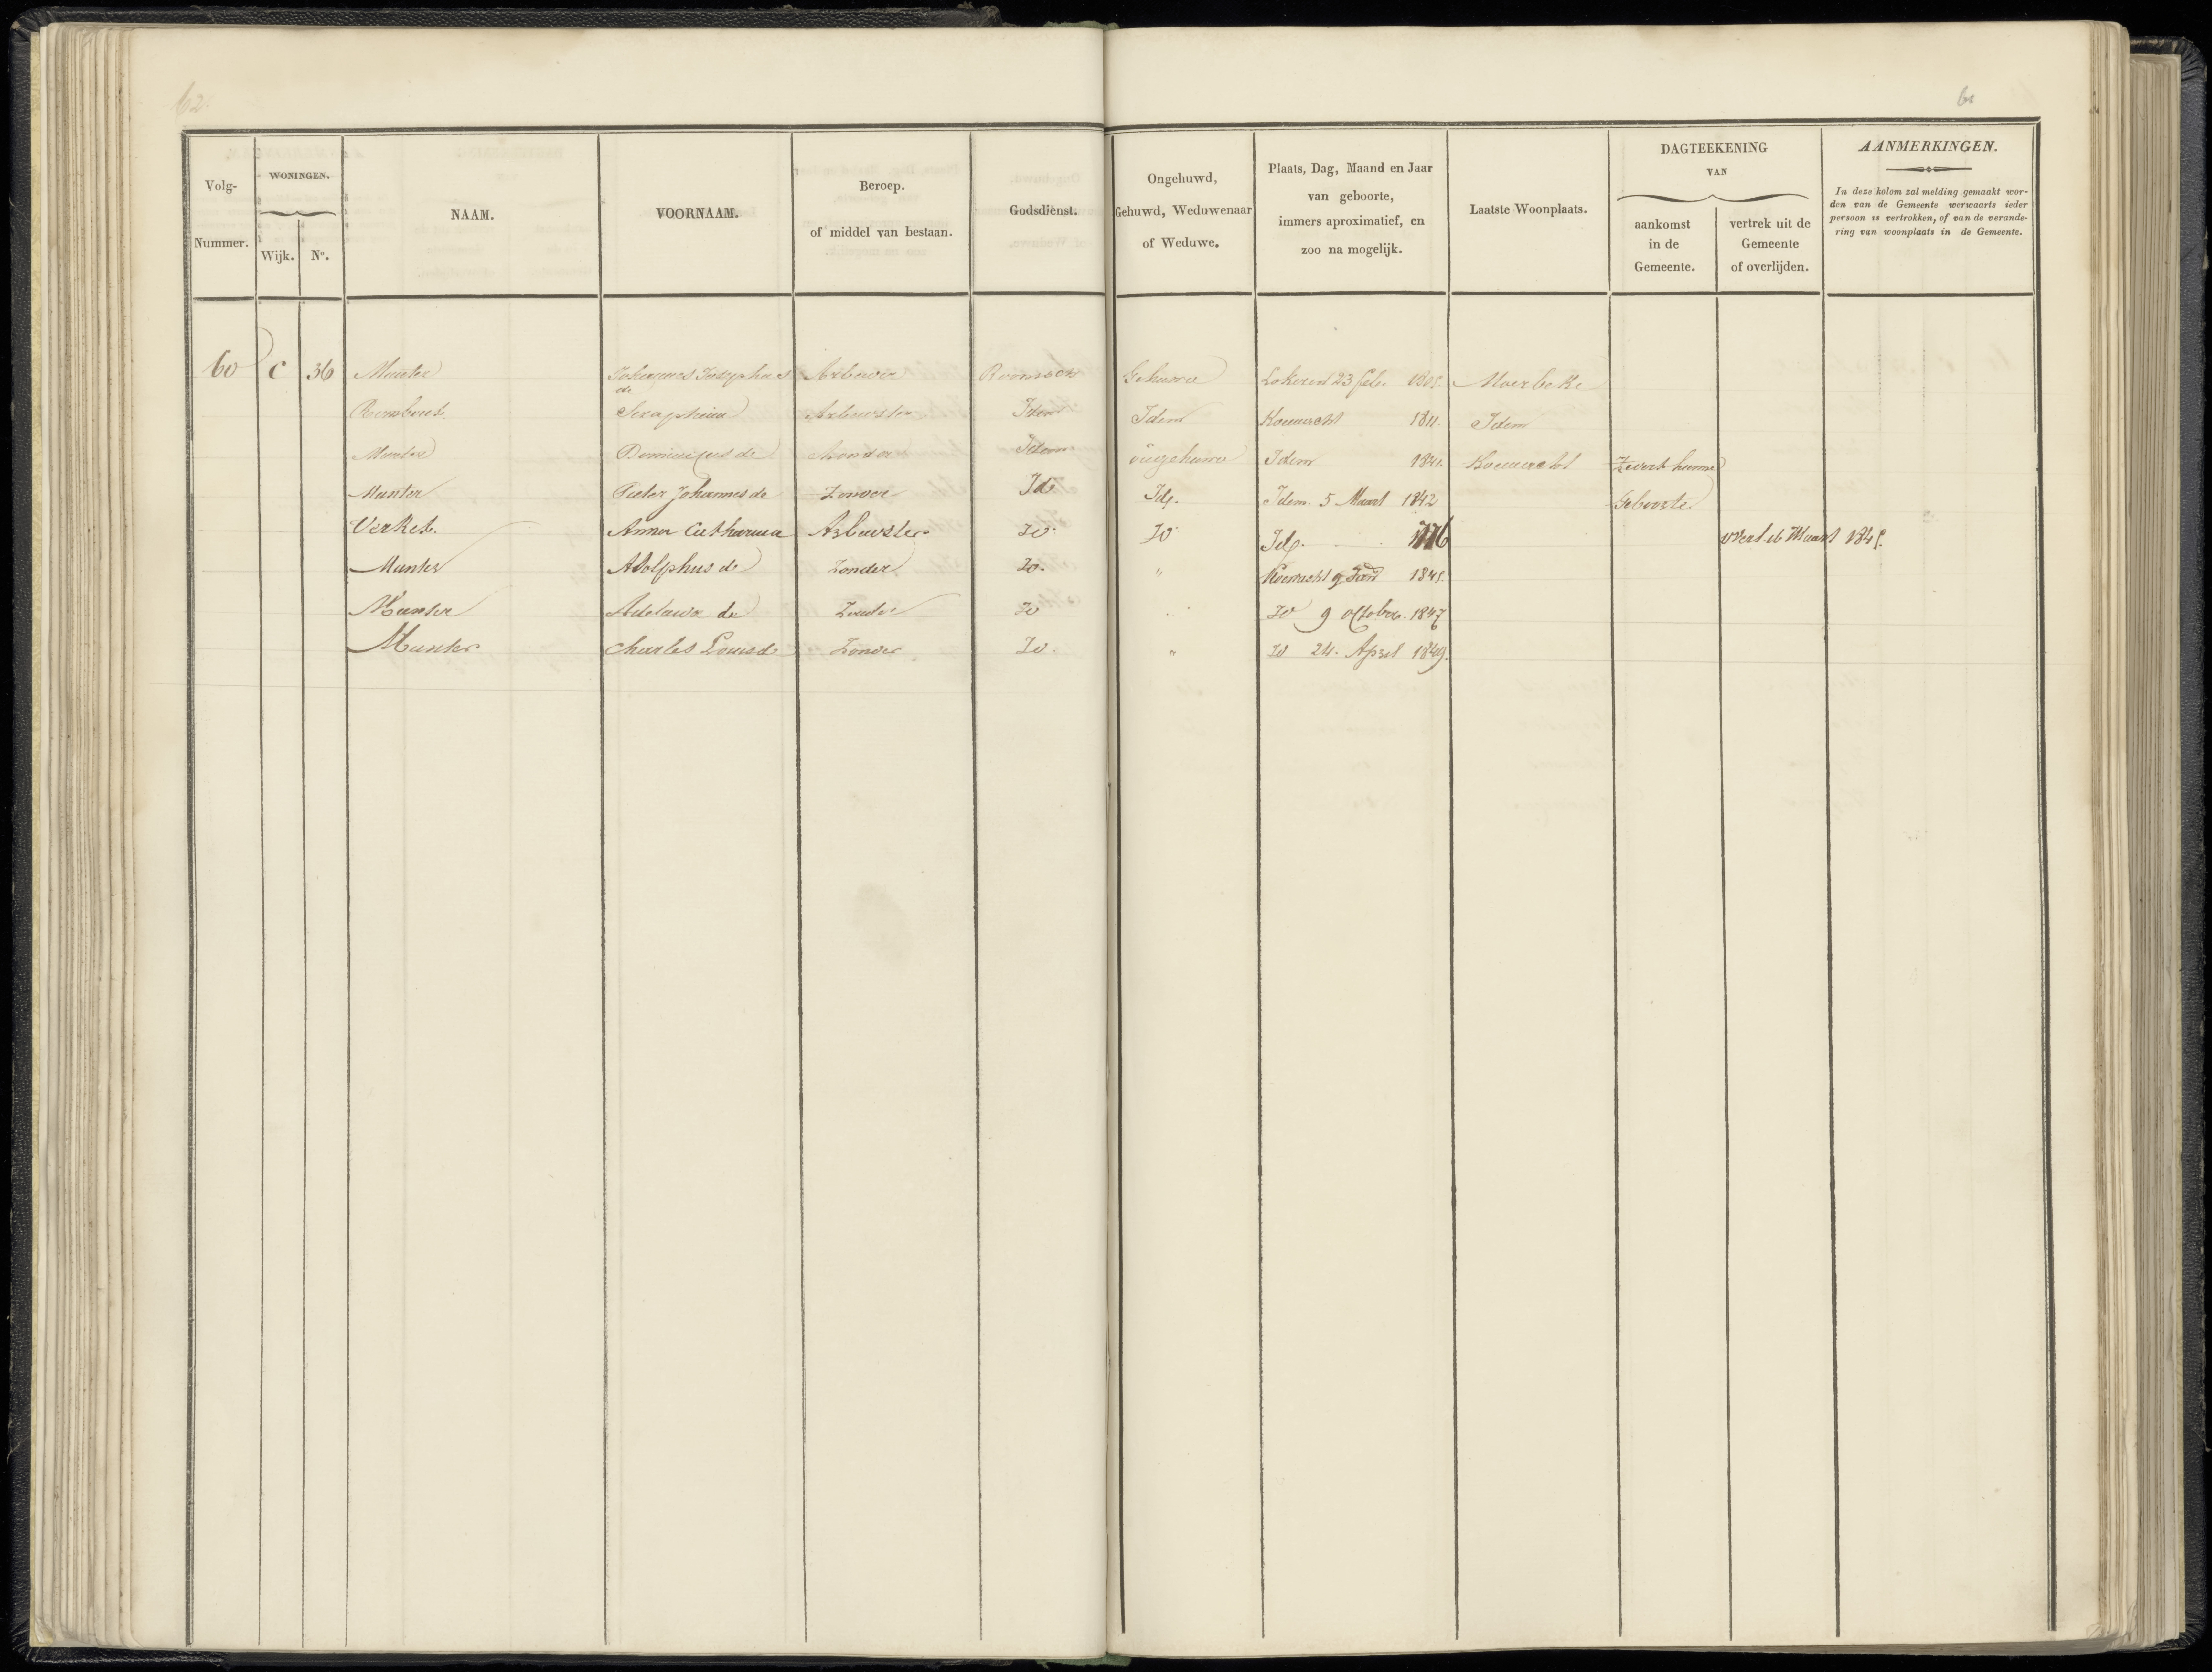 62.
61
Volg-
Nummer.
WONINGEN.
Wijk. No.
NAAM.
VOORNAAM.
Beroep.
of middel van bestaan.
Godsdienst.
Ongehuwd,
Gehuwd, Weduwenaar
of Weduwe.
Plaats, Dag, Maand en Jaar
van geboorte,
immers aproximatief, en
zoo na mogelijk.
Laatste Woonplaats.
DAGTEEKENING
VAN
aankomst
in de
Gemeente.
vertrek uit de
Gemeente
of overlijden.
AANMERKINGEN.
In deze kolom zal melding gemaakt wor-
den van de Gemeente werwaarts ieder
persoon is vertrokken, of van de verande-
ring van woonplaats in de Gemeente.
60 C 36 Munter Johannes Josephus de Arbeider Roomsch Gehuwd Lokeren 23 feb. 1805. Moerbeke
Seraphina Arbeidster Idem Idem Koewacht 1811. Idem
Munter Dominicus de Zonder Idem ongehuwd Idem 1841. Koewacht
Munter Pieter Johannes de Zonder Id Id. Idem 5 Maart 1842 Geboorte
Verket. Anna Catharina Arbeidster Id. Id Id. 1776 vert. 16 Maart 1845.
Munter Adolphus de Zonder Id. " Koewacht 9 Jan 1845.
Munter de Zonder Id " Id 9 October. 1847
Munter Charles Louis de Zonder Id. " Id 24. April 1849.